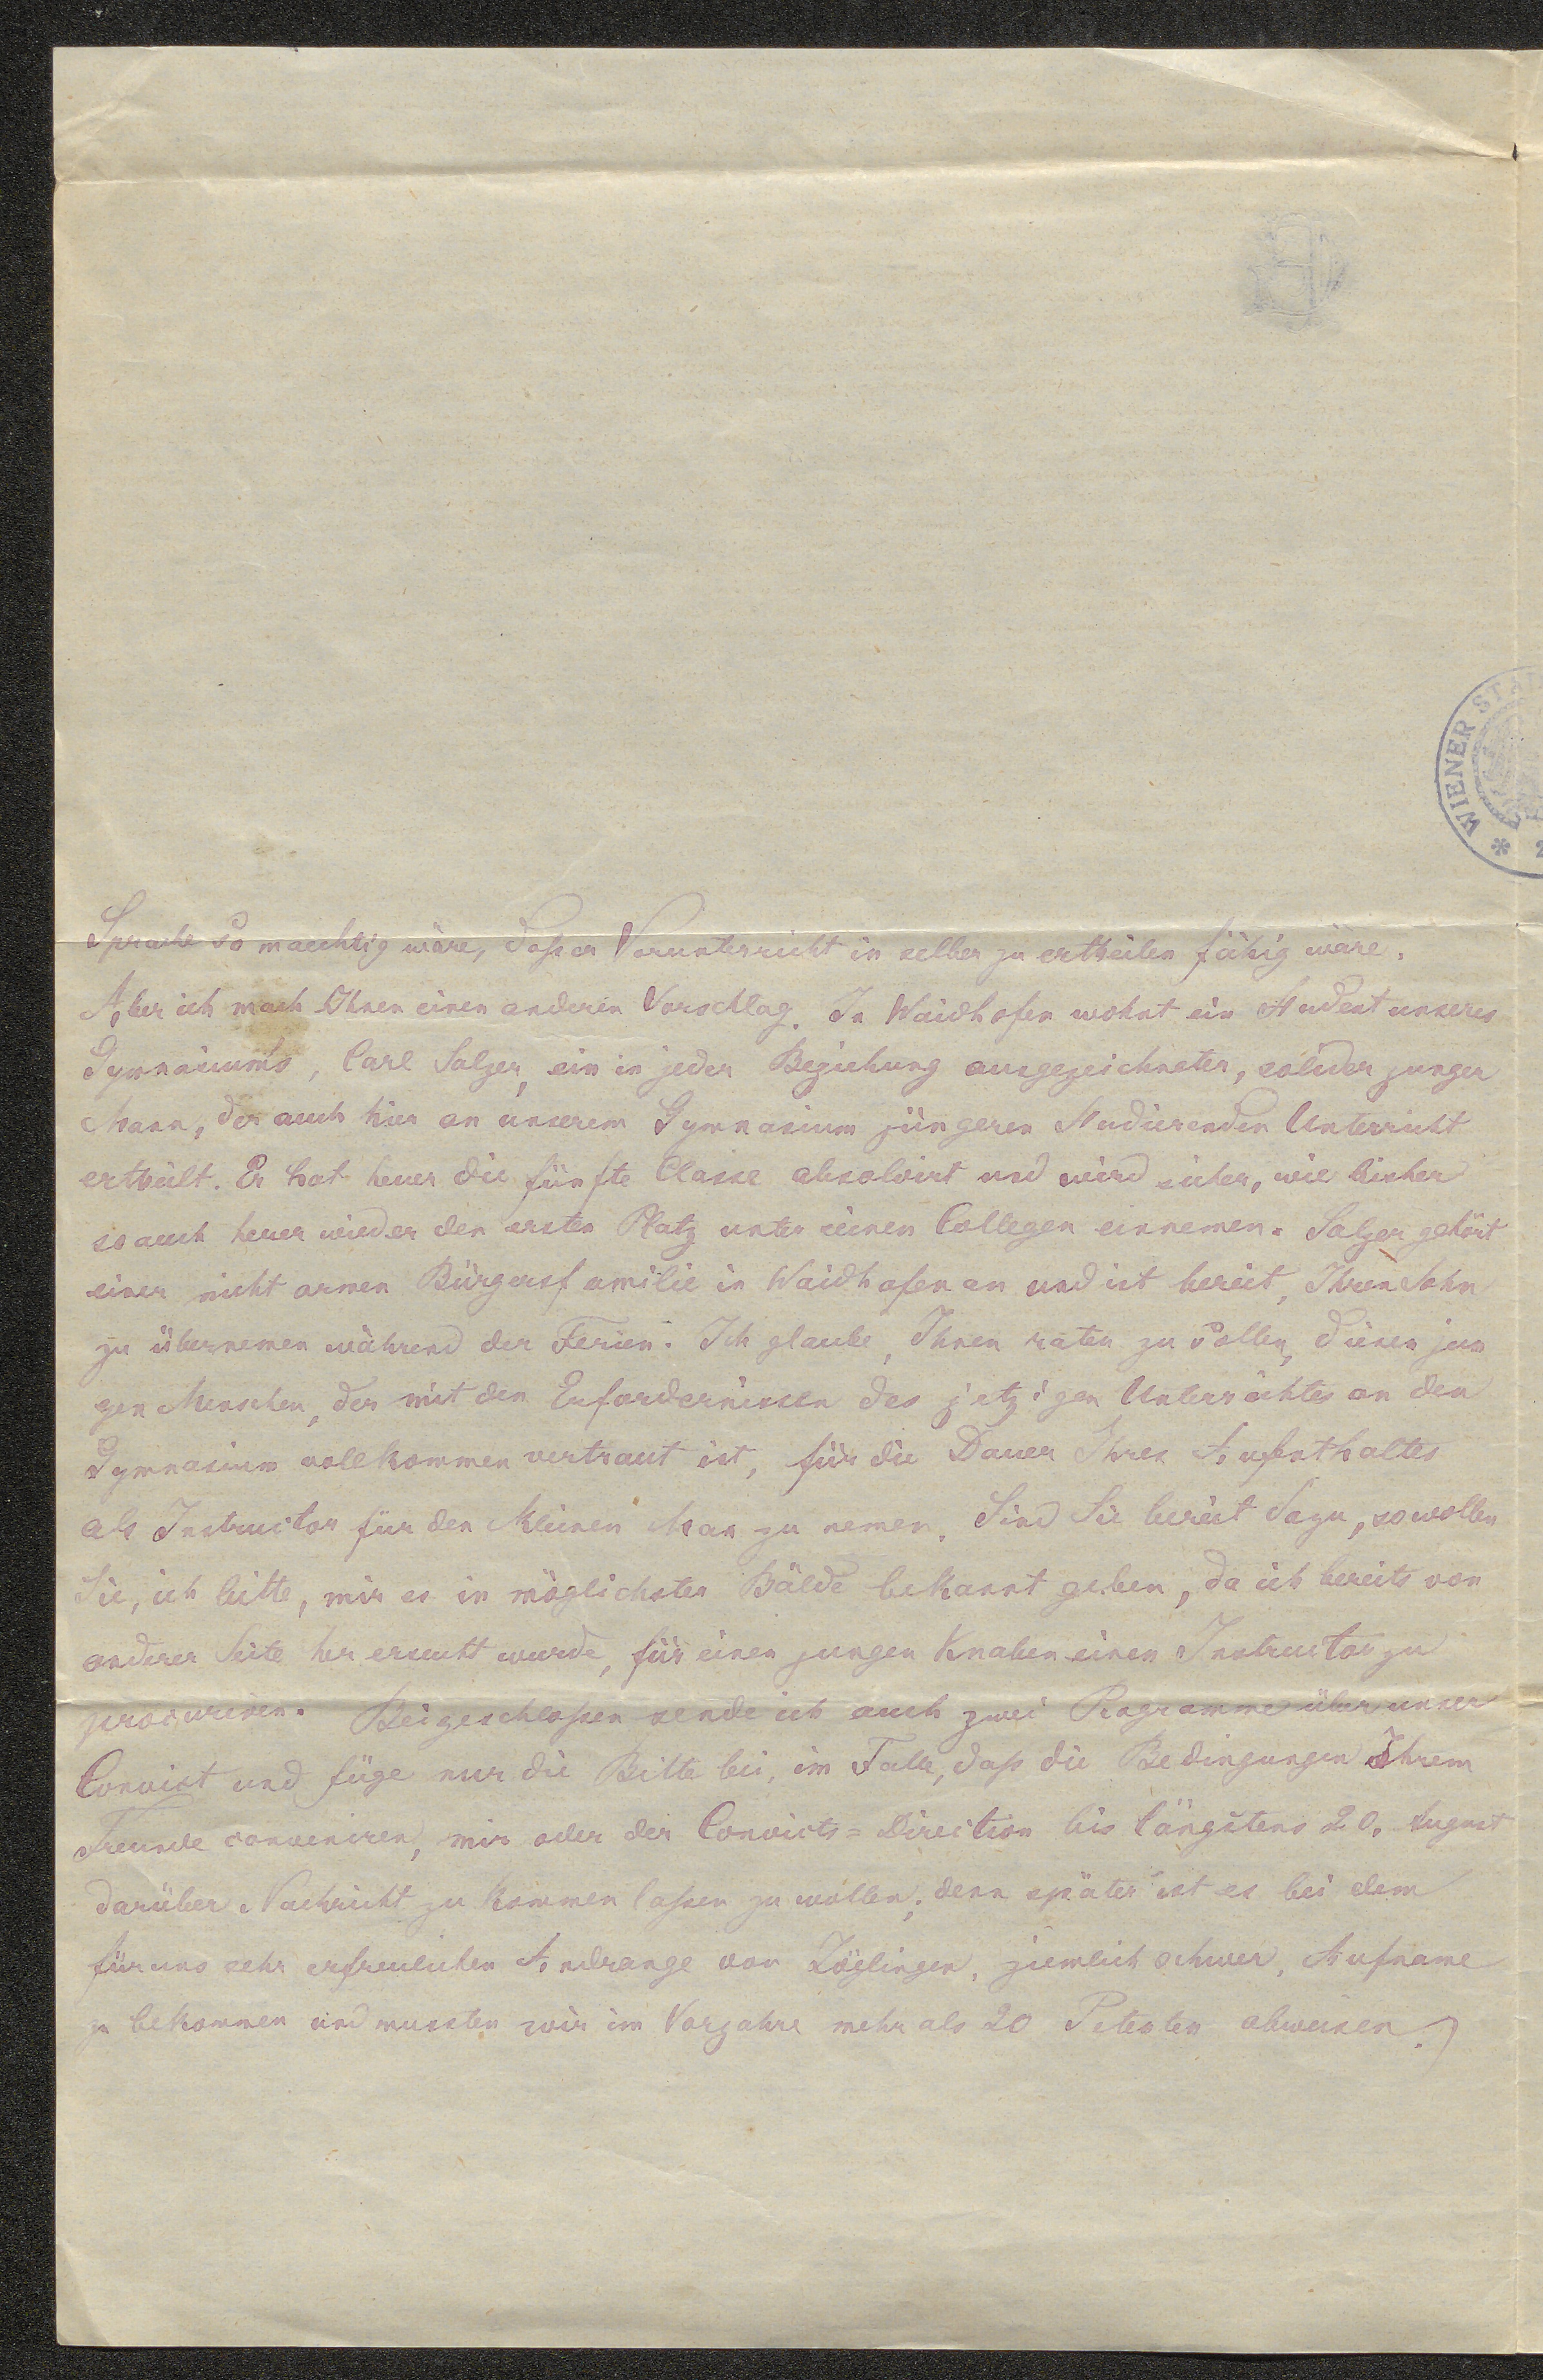 WIENER STA
Sprache so maechtig wäre, daß er Vorunterricht in selber zu ertheilen fähig wäre.
Aber ich mach Ihnen einen anderen Vorschlag. In Waidhofen wohnt ein Student unseres
Gymnasiums, Carl Salzer, ein in jeder Beziehung ausgezeichneter, solider junger
Mann, der auch hier an unserem Gymnasium jüngeren Studierenden Unterricht
ertheilt. Er hat heuer die fünfte Classe absolvirt und wird sicher, wie bisher
so auch heuer wieder den ersten Platz unter seinen Collegen einnemen. Salzer gehört
einer nicht armen Bürgersfamilie in Waidhofen an und ist bereit, Ihren Sohn
zu übernemen während der Ferien. Ich glaube, Ihnen raten zu sollen, diesen jun
gen Menschen, der mit den Erfordernissen des jetzigen Unterrichtes an den
Gymnasium vollkommen vertraut ist, für die Dauer Ihres Aufenthaltes
als Instructor für den kleinen Max zu nemen. Sind Sie bereit dazu, so wollen
Sie, ich bitte, mir es in möglichster Bälde bekannt geben, da ich bereits von
anderer Seite her ersucht wurde, für einen jungen Knaben einen Instructor zu
procuriren. Beigeschloßen sende ich auch zwei Programme über unser
Convict und füge nur die Bitte bei, im Falle, daß die Bedingungen Ihrem
Freunde conveniren, mir oder der Convicts=Direction bis längstens 20. August
darüber Nachricht zu kommen laßen zu wollen; denn später ist es bei dem
für uns sehr erfreulichen Andrange von Zöglingen, ziemlich schwer, Aufname
zu bekommen und mussten wir im Vorjahre mehr als 20 Petenten abweisen.